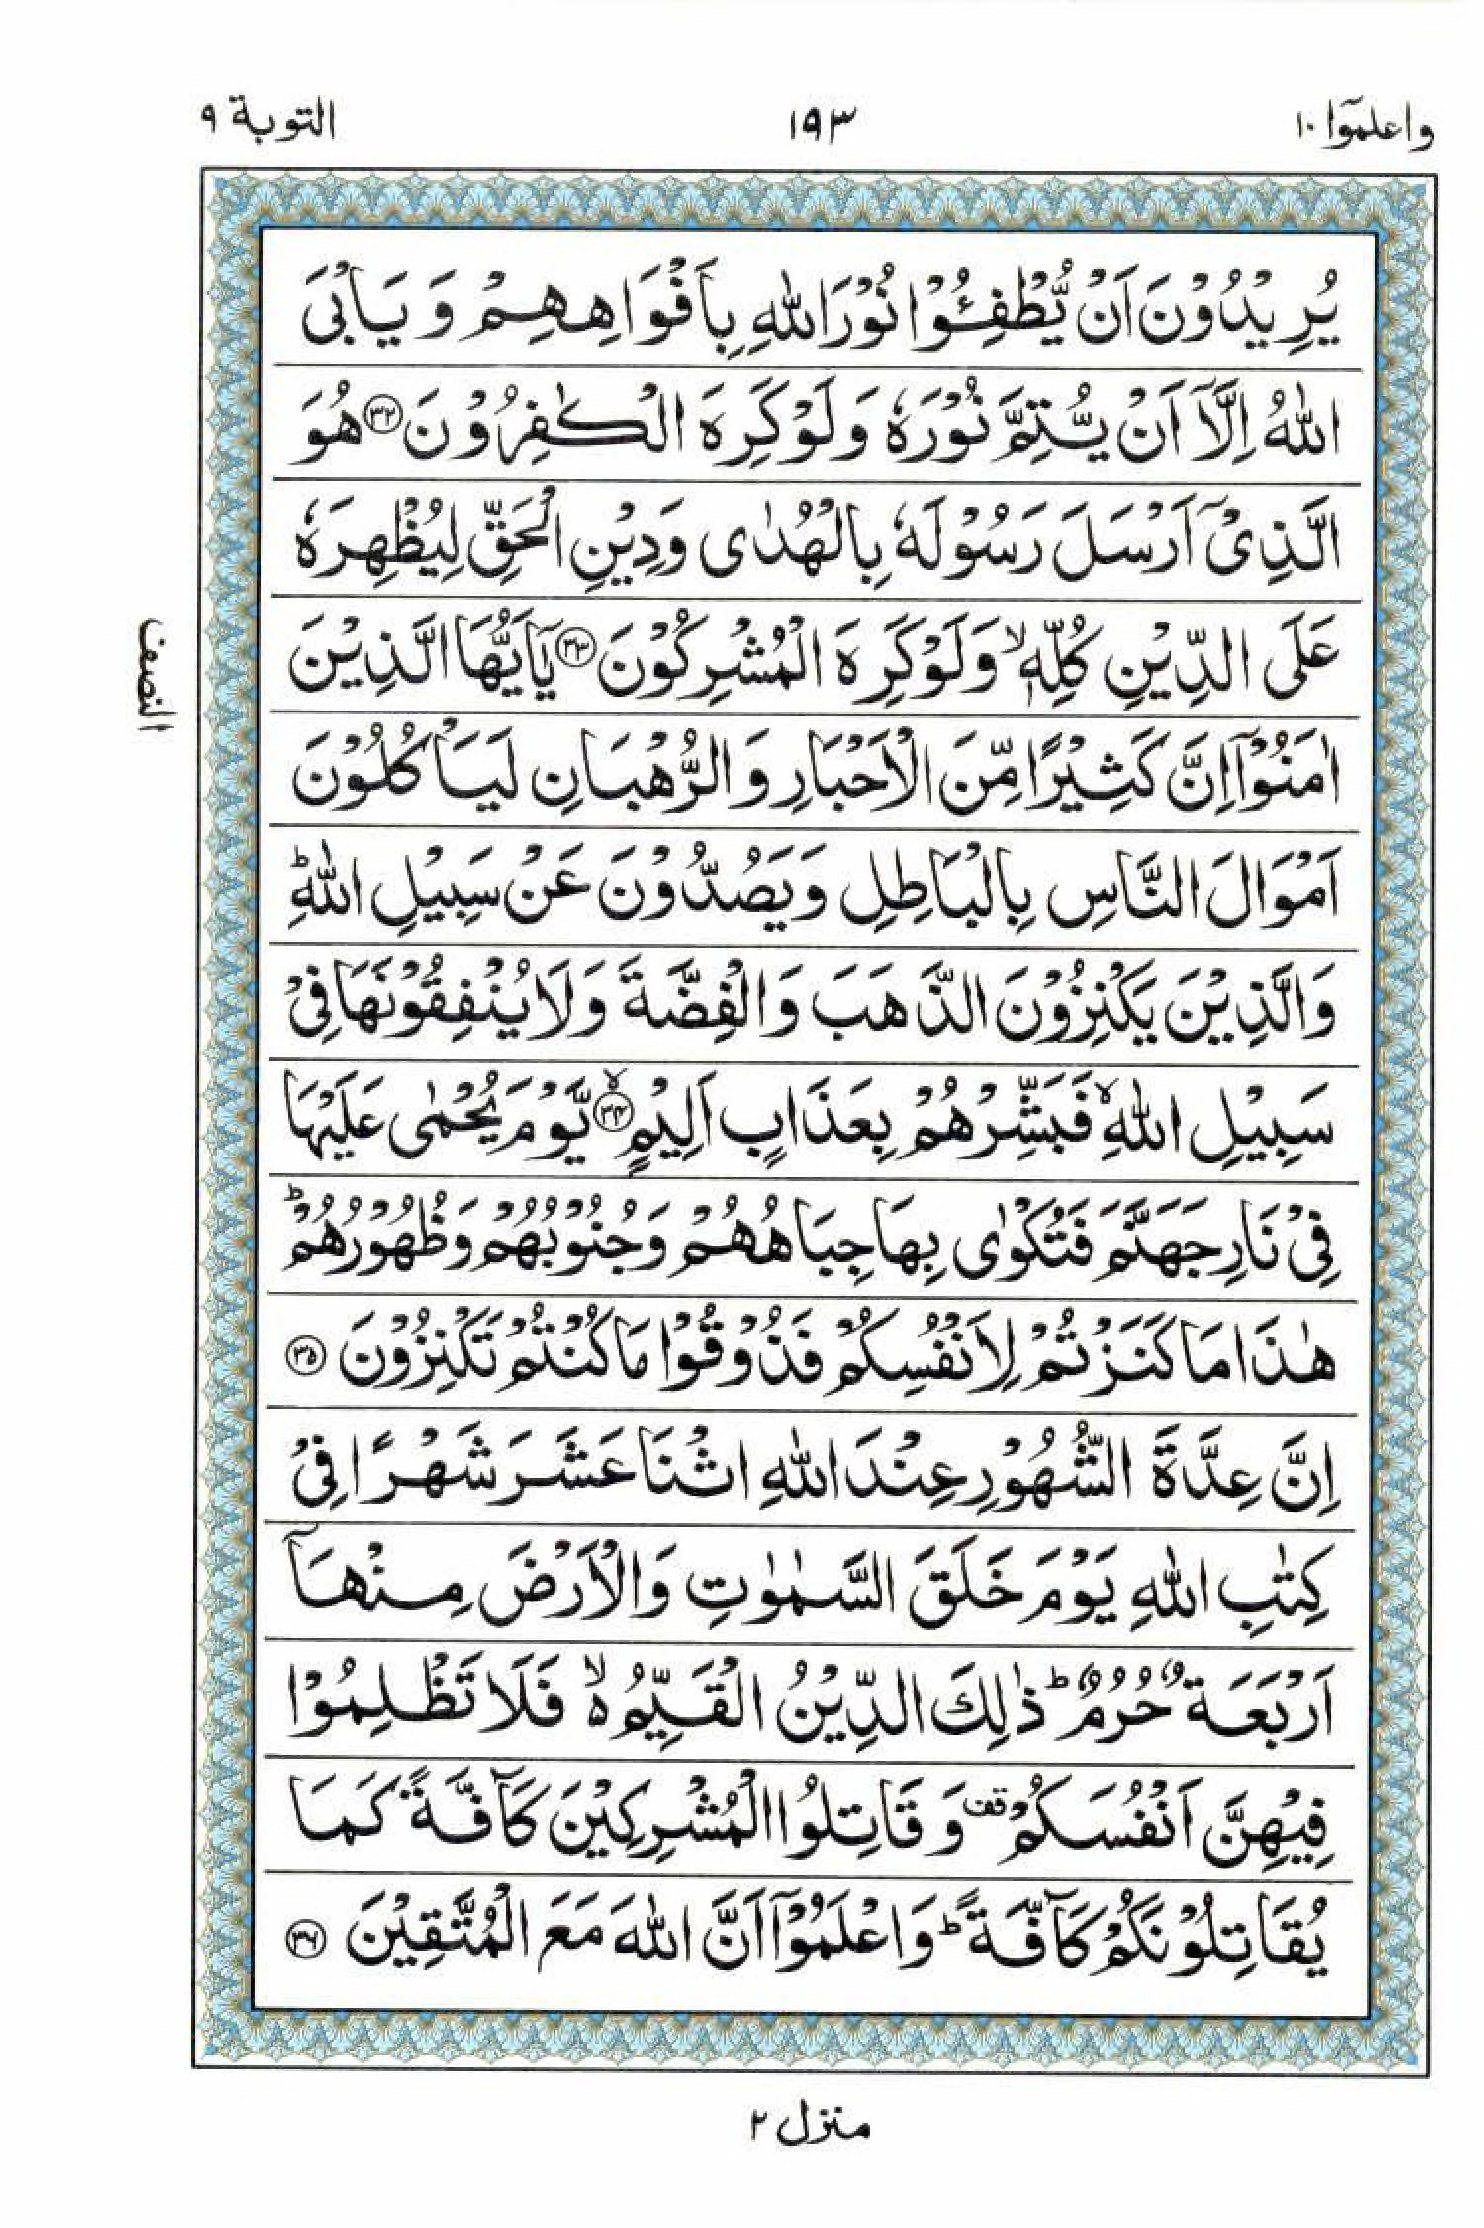 واعلموٓا ١٠
١٩٣
التوبة ٩
يُرِيْدُوْنَ اَنْ يُّطْفِـُٔوْا نُوْرَ اللّٰهِ بِاَفْوَاهِهِمْ وَيَاْبَى
اللّٰهُ اِلَّاۤ اَنْ يُّتِمَّ نُوْرَهٗ وَلَوْ كَرِهَ الْكٰفِرُوْنَ ﴿٣٢﴾ هُوَ
الَّذِىْۤ اَرْسَلَ رَسُوْلَهٗ بِالْهُدٰى وَدِيْنِ الْحَقِّ لِيُظْهِرَهٗ
عَلَى الدِّيْنِ كُلِّهٖۙ وَلَوْ كَرِهَ الْمُشْرِكُوْنَ ﴿٣٣﴾ يٰۤاَيُّهَا الَّذِيْنَ
النصف
اٰمَنُوْۤا اِنَّ كَثِيْرًا مِّنَ الْاَحْبَارِ وَالرُّهْبَانِ لَيَاْكُلُوْنَ
اَمْوَالَ النَّاسِ بِالْبَاطِلِ وَيَصُدُّوْنَ عَنْ سَبِيْلِ اللّٰهِؕ
وَالَّذِيْنَ يَكْنِزُوْنَ الذَّهَبَ وَالْفِضَّةَ وَلَا يُنْفِقُوْنَهَا فِىْ
سَبِيْلِ اللّٰهِۙ فَبَشِّرْهُمْ بِعَذَابٍ اَلِيْمٍ ﴿٣٤﴾ۙ يَّوْمَ يُحْمٰى عَلَيْهَا
فِىْ نَارِ جَهَنَّمَ فَتُكْوٰى بِهَا جِبَاهُهُمْ وَجُنُوْبُهُمْ وَظُهُوْرُهُمْؕ
هٰذَا مَا كَنَزْتُمْ لِاَنْفُسِكُمْ فَذُوْقُوْا مَا كُنْتُمْ تَكْنِزُوْنَ ﴿٣٥﴾
اِنَّ عِدَّةَ الشُّهُوْرِ عِنْدَ اللّٰهِ اثْنَا عَشَرَ شَهْرًا فِىْ
كِتٰبِ اللّٰهِ يَوْمَ خَلَقَ السَّمٰوٰتِ وَالْاَرْضَ مِنْهَاۤ
اَرْبَعَةٌ حُرُمٌؕ ذٰلِكَ الدِّيْنُ الْقَيِّمُ ۙ فَلَا تَظْلِمُوْا
فِيْهِنَّ اَنْفُسَكُمْ قف وَقَاتِلُوا الْمُشْرِكِيْنَ كَآفَّةً كَمَا
يُقَاتِلُوْنَكُمْ كَآفَّةًؕ وَاعْلَمُوْۤا اَنَّ اللّٰهَ مَعَ الْمُتَّقِيْنَ ﴿٣٦﴾
منزل ٢